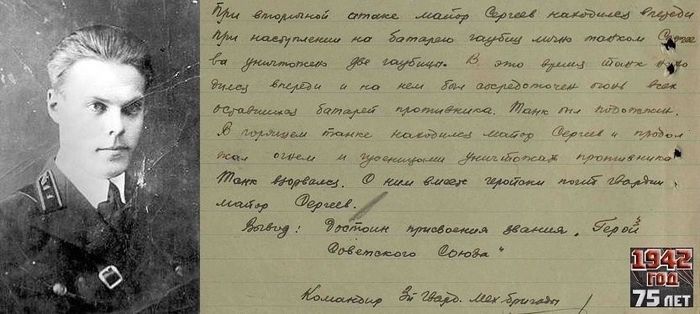 При вторичной атаке майор Сергеев находился впереди
При наступлении на батарею гаубиц лично танком Серге
ва уничтожено две гаубицы. В это время танк нахо
дился впереди и на нем был сосредоточен огонь всех
оставшихся батарей противника. Танк был подожжен.
В горящем танке находился майор Сергеев и продол
жал огнем и гусеницами уничтожать противника
Танк взорвался. С ним вместе геройски погиб гвардии
майор Сергеев.
Вывод: Достоин присвоения звания „Герой
Советского Союза"
Командир 3й Гвард. Мех. бригады
1942
ГОД
75 ЛЕТ